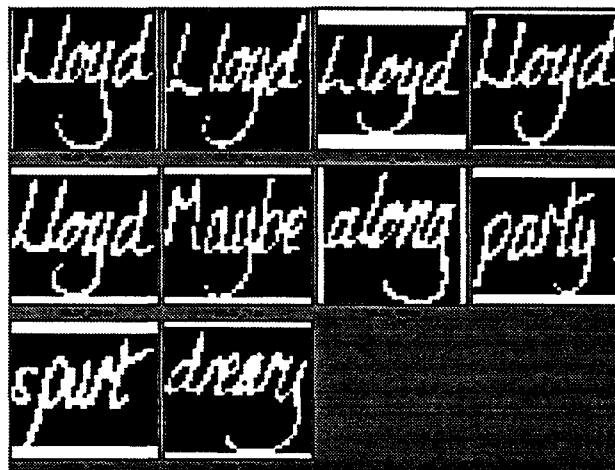 Lloyd Lloyd Lloyd Lloyd
Lloyd Maybe along party
spurt dreary